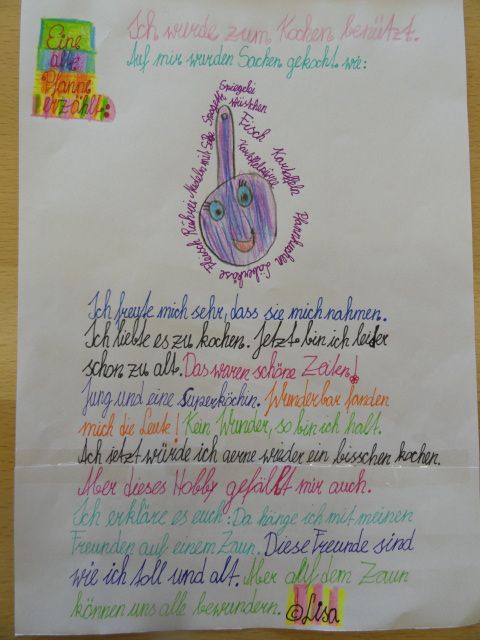 Eine
alte
Pfanne
erzählt:
Ich wurde zum Kochen benützt.
Auf mir wurden Sachen gekocht wie:
Fleisch Rührei Nudeln mit Soße Spagetti Spiegelei
würstchen
Fisch
Kartoffelpüree
Kartoffeln
Pfannkuchen Leberkäse
Ich freute mich sehr, dass sie mich nahmen.
Ich liebte es zu kochen. Jetzt bin ich leider
schon zu alt. Das waren schöne Zeiten!
Jung und eine Superköchin. Wunderbar fanden
mich die Leute! Kein Wunder, so bin ich halt.
Ach jetzt würde ich gerne wieder ein bisschen kochen.
Aber dieses Hobby gefällt mir auch.
Ich erkläre es euch: Da hänge ich mit meinen
Freunden auf einem Zaun. Diese Freunde sind
wie ich toll und alt. Aber auf dem Zaun
können uns alle bewundern. ©Lisa